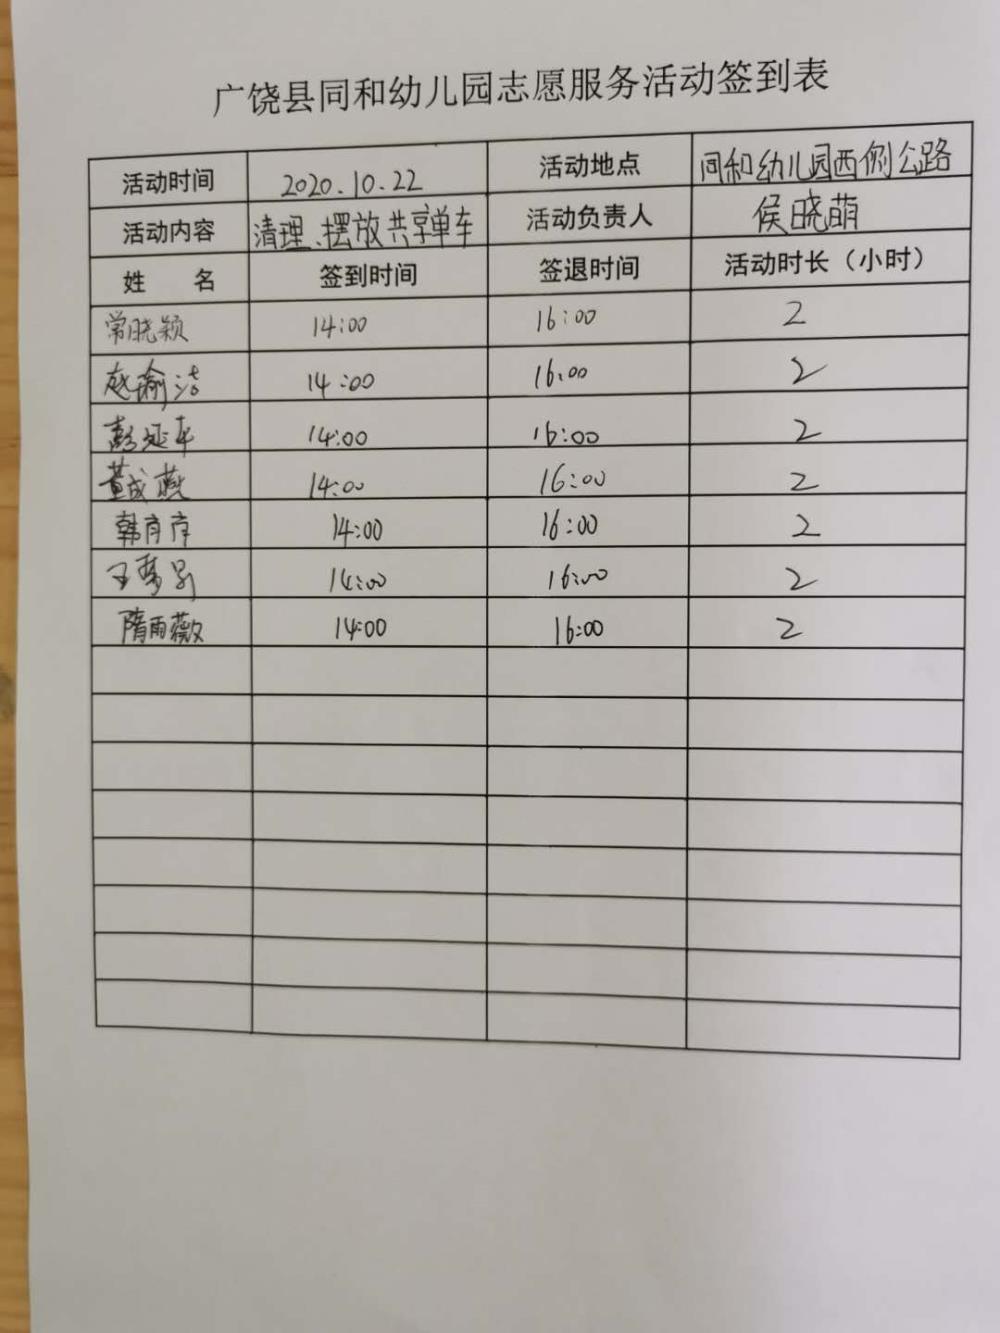 广饶县同和幼儿园志愿服务活动签到表
活动时间 2020.10.22 活动地点 同和幼儿园西侧公路
活动内容 清理、摆放共享单车 活动负责人 侯晓萌
姓 名 签到时间 签退时间 活动时长（小时）
常晓颖 14:00 16:00 2
赵瑜洁 14:00 16:00 2
彭延车 14:00 16:00 2
董成燕 14:00 16:00 2
韩 14:00 16:00 2
王梦 14:00 16:00 2
隋雨薇 14:00 16:00 2